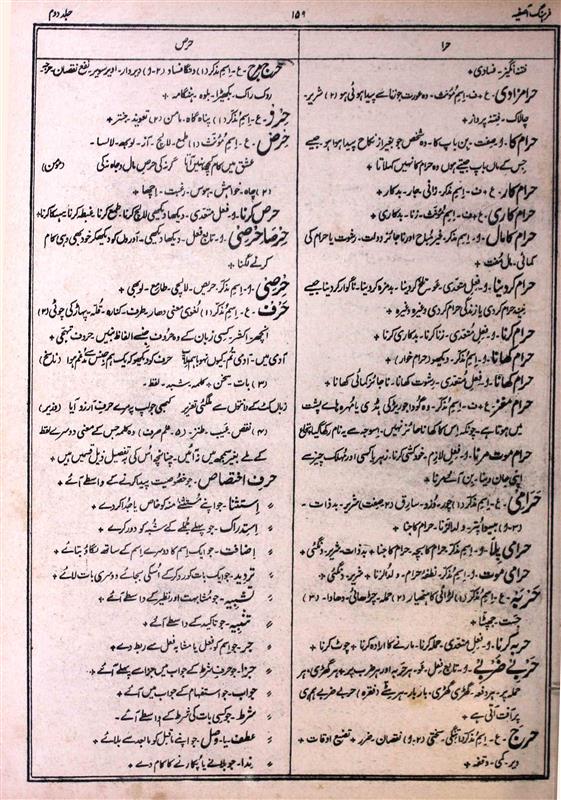 فرہنگ آصفیہ
۱۵۹
جلد دوم
حرا
حرص
فتنہ انگیز۔ فسادی +
حرامزادی۔ ع + ف۔ اسم مؤنث۔ وہ عورت جو زنا سے پیدا ہوئی ہو (۲) شریر۔
چالاک۔ فتنہ پرداز +
حرام کا۔ و۔ صفت۔ بن باپ کا۔ وہ شخص جو بغیر از نکاح پیدا ہوا ہو جیسے
جس کے ماں باپ جیتے ہوں وہ حرام کا نہیں کہلاتا +
حرام کار۔ ع + ف۔ اسم مذکر۔ زانی۔ جار۔ بدکار +
حرام کاری۔ ع + ف۔ اسم مؤنث۔ زنا۔ بدکاری +
حرام کا مال۔ و۔ اسم مذکر۔ غیر مباح اور ناجائز دولت۔ رشوت یا حرام کی
کمائی۔ مال مفت +
حرام کر دینا۔ و۔ فعل متعدی۔ تلخ کر دینا۔ بے مزہ کر دینا۔ ناگوار کر دینا جیسے
نیند حرام کر دی یا زندگی حرام کر دی وغیرہ وغیرہ +
حرام کرنا۔ و۔ فعل متعدی۔ زنا کرنا۔ بدکاری کرنا +
حرام کھانا۔ و۔ اسم مذکر۔ دیکھو (حرام خوار) +
حرام کھانا۔ و۔ فعل متعدی۔ رشوت کھانا۔ ناجائز کمائی کھانا +
حرام مغز۔ ع + ف۔ اسم مذکر۔ وہ گودا جو ریڑھ کی ہڈی یا مہرہ ہائے پشت
میں ہوتا ہے۔ چونکہ اس کا کھانا جائز نہیں۔ اس وجہ سے یہ نام رکھا گیا
حرام موت مرنا۔ و۔ فعل لازم۔ خودکشی کرنا۔ زہر یا کسی اور مہلک چیز سے
اپنی جان دینا۔ بن آئے مرنا +
حرامی۔ ع۔ اسم مذکر (۱) چور۔ دزد۔ سارق (۲۔ صفت) شریر۔ بدذات۔
(۳۔ و) ولد الزنا۔ حرام کا جنا +
حرامی پلا۔ و۔ اسم مذکر۔ حرام کا بچہ۔ حرام کا جنا + بدذات۔ شریر۔ دنگئی +
حرامی موت۔ و۔ اسم مذکر۔ نطفۂ حرام۔ ولد الزنا + شریر۔ دنگئی +
حربہ۔ ع۔ اسم مذکر (۱) لڑائی کا ہتھیار (۲) حملہ۔ چڑھائی۔ دھاوا۔ (۳)
جست۔ جھپٹا +
حربہ کرنا۔ و۔ فعل متعدی۔ حملہ کرنا۔ مارنے کا ارادہ کرنا + چوٹ کرنا +
حربے ضربے۔ و۔ تابع فعل۔ ہر حربہ اور ہر ضرب پر + ہر گھڑی۔ ہر
حملہ پر۔ ہر دفعہ۔ گھڑی گھڑی۔ بار بار۔ (فقرہ) حربے ضربے ہمیں
پر آفت آتی ہے +
حرج۔ ع۔ اسم مذکر (۱) تنگی۔ سختی (۲۔ و) نقصان۔ ضرر + تضیع اوقات +
دیر۔ کمی۔ وقفہ +
حرج مرج۔ ع۔ اسم مذکر (۱) دنگا فساد (۲۔ و) دیر دار۔ نفع نقصان۔
روک راک۔ بکھیڑا۔ بلوہ۔ ہنگامہ +
حرز۔ ع۔ اسم مذکر (۱) پناہ گاہ۔ مامن (۲) تعویذ۔ جنتر +
حرص۔ ع۔ اسم مؤنث (۱) طمع۔ لالچ۔ آز۔ لوبھ۔ لالسا۔
عشق میں کام کچھ نہیں آتا گر نہ کی حرص مال و جاہ نہ کی (مومن)
(۲) چاہ۔ خواہش۔ ہوس۔ رغبت۔ اچھا +
حرص کرنا۔ و۔ فعل متعدی۔ دیکھا دیکھی لالچ کرنا۔ طمع کرنا۔ غبطہ کرنا۔
حرصا حرصی۔ و۔ تابع فعل۔ دیکھا دیکھی۔ آوروں کو دیکھ کر خود بھی وہی کام
کرنے لگنا +
حرصی۔ و۔ اسم مذکر۔ حریص۔ لالچی۔ طامع۔ لوبھی +
حرف۔ ع۔ اسم مذکر (۱) لغوی معنی دھار۔ طرف۔ کنارہ۔ قلہ۔ پہاڑ کی چوٹی (۲)
اچھر۔ اکشر۔ کسی زبان کے وہ حروف جن سے الفاظ بنیں۔ حروف تہجی +
(ناسخ)
(۳) بات۔ سخن + کلمہ۔ شبد۔ لفظ۔
زباں کٹ کے دانتوں سے کبھی جواب پر میرے حرف آرزو آیا (وزیر)
(۴) نقص۔ عیب۔ طنز۔ (۵۔ علم صرف) وہ کلمہ جس کے معنی دوسرے لفظ
کے ملے بغیر سمجھ میں نہ آئیں۔ چنانچہ اس کی تفصیل ذیل میں ہے +
حرف اختصاص۔ جو خصوصیت پیدا کرنے کے واسطے آئے +
〃 استثنا۔ جو اپنے مستثنےٰ منہ کو خاص یا جدا کر دے +
〃 استدراک۔ جو پہلے جملے کے شبہ کو دور کرے +
〃 اضافت۔ جو ایک اسم کا دوسرے اسم کے ساتھ لگاؤ بتائے +
〃 تردید۔ جو ایک بات کو رد کر کے اسکی بجائے دوسری بات لائے +
〃 تشبیہ۔ جو مشابہت اور نظیر کے واسطے آئے +
〃 تنبیہ۔ جو تاکید کے واسطے آئے +
〃 جر۔ جو اسم کو فعل یا مشابہ فعل سے ربط دے +
〃 جزا۔ جو حرف شرط کے جواب میں جزا سے پہلے آئے +
〃 جواب۔ جو استفہام کے جواب میں آئے +
〃 شرط۔ جو کسی بات کی شرط کے واسطے آئے +
〃 عطف یا وصل۔ جو اپنے ماقبل کو مابعد سے ملائے +
〃 ندا۔ جو بلانے یا پکارنے کا کام دے +